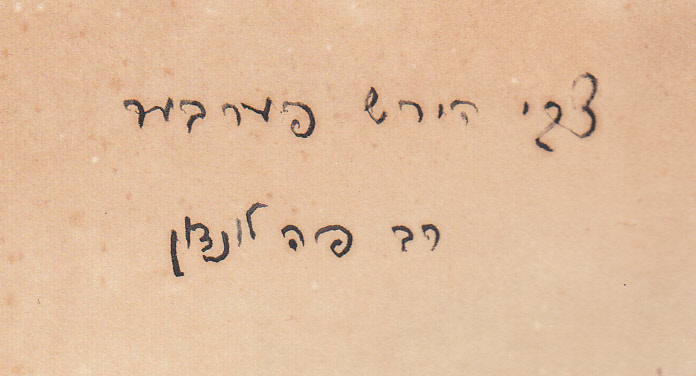 צבי הירש פערבער
רב פה לונדאן